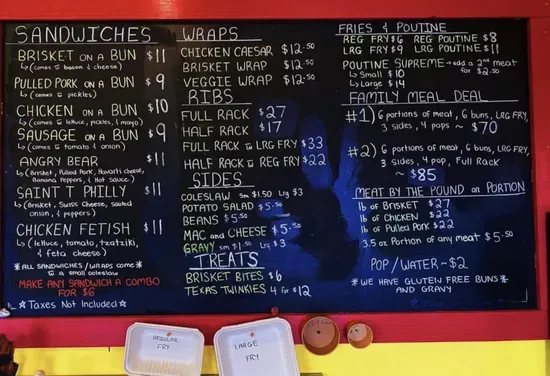 SANDWICHES
BRISKET ON A BUN $11
↳ (comes w bacon & cheese)
PULLED PORK ON A BUN $9
↳ (comes w pickles)
CHICKEN ON A BUN $10
↳ (comes w lettuce, pickles, & mayo)
SAUSAGE ON A BUN $9
↳ (comes w tomato & onion)
ANGRY BEAR $11
↳ (Brisket, Pulled Pork, Havarti cheese,
Banana Peppers, & Hot sauce)
SAINT T PHILLY $11
↳ (Brisket, Swiss Cheese, sauteed
onion, & peppers)
CHICKEN FETISH $11
↳ (lettuce, tomato, tzatziki,
& feta cheese)
*ALL SANDWICHES/WRAPS come*
w a small coleslaw
MAKE ANY SANDWICH A COMBO
FOR $6
☆ Taxes Not Included ☆
WRAPS
CHICKEN CAESAR $12.50
BRISKET WRAP $12.50
VEGGIE WRAP $12.50
RIBS
FULL RACK $27
HALF RACK $17
FULL RACK w LRG FRY $33
HALF RACK w REG FRY $22
SIDES
COLESLAW Sm $1.50 Lrg $3
POTATO SALAD $5.50
BEANS $5.50
MAC and CHEESE $5.50
GRAVY Sm $1.50 Lrg $3
TREATS
BRISKET BITES $6
TEXAS TWINKIES 4 for $12
FRIES & POUTINE
REG FRY $6 REG POUTINE $8
LRG FRY $9 LRG POUTINE $11
POUTINE SUPREME → add a 2nd meat
for $2.50
↳ Small $10
↳ Large $14
FAMILY MEAL DEAL
#1) 6 portions of meat, 6 buns, LRG FRY,
3 sides, 4 pops ~ $70
#2) 6 portions of meat, 6 buns, LRG FRY,
3 sides, 4 pop, Full Rack
~ $85
MEAT BY THE POUND or PORTION
lb of BRISKET $27
lb of CHICKEN $22
lb of Pulled Pork $22
3.5 oz Portion of any meat $5.50
POP/WATER ~ $2
*WE HAVE GLUTEN FREE BUNS*
AND GRAVY
REGULAR
FRY
LARGE
FRY